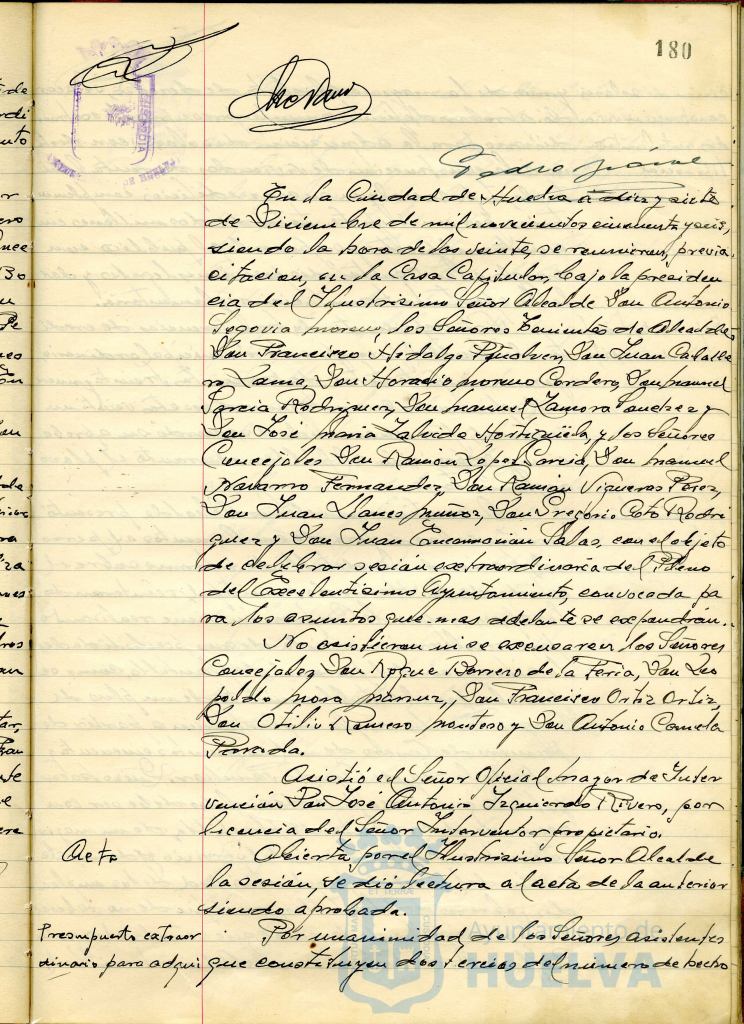 180
Pedro Gómez
En la Ciudad de Huelva a diez y siete
de Diciembre de mil novecientos cincuenta y seis,
siendo la hora de las veinte, se reunieron, previa
citacion, en la Casa Capitular, bajo la presiden
cia del Ilustrisimo Señor Alcalde Don Antonio
Segovia Moreno, los Señores Tenientes de Alcalde,
Don Francisco Hidalgo Peñalver, Don Juan Caballe
ro Lama, Don Horacio Moreno Cordero, Don Manuel
Garcia Rodriguez, Don Manuel Zamora Sanchez y
Don José Maria Zalvide Hortigüela y los Señores
Concejales Don Ramón Lopez Garcia, Don Manuel
Navarro Fernandez, Don Ramon Vigueras Perez,
Don Juan Llanes Muñoz, Don Gregorio Coto Rodri
guez y Don Juan Encarnación Salas, con el objeto
de celebrar sesión extraordinaria del Pleno
del Excelentisimo Ayuntamiento, convocada pa
ra los asuntos que mas adelante se expondrán.
No asistieron ni se excusaron los Señores
Concejales Don Roque Borrero de la Feria, Don Leo
poldo Mora, Don Francisco Ortiz Ortiz,
Don Otilio Romero Montero y Don Antonio Canela
Parada.
Asistió el Señor Oficial Mayor de Inter
vención Don José Antonio Izquierdo Rivero, por
licencia del Señor Interventor propietario.
Acta
Abierta por el Ilustrisimo Señor Alcalde
la sesión, se dió lectura al acta de la anterior
siendo aprobada.
Presupuesto extraor
dinario para adqui
Por unanimidad de los Señores asistentes
que constituyen dos tercios del número de hecho
Ayuntamiento de
HUELVA